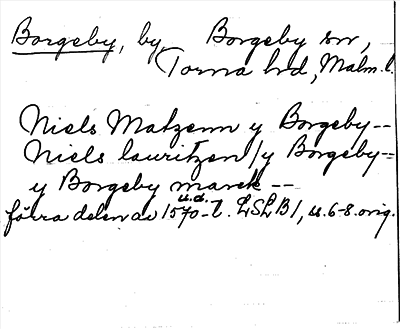 Borgeby, by, Borgeby sn,
Torna hd, Malm. l.
Niels Matzenn y Borgeby --
Niels lauritzen / y Borgeby --
y Borgeby marck --
u.d.
förra delen av 1570-t. LSLB 1, s. 6-8. orig.